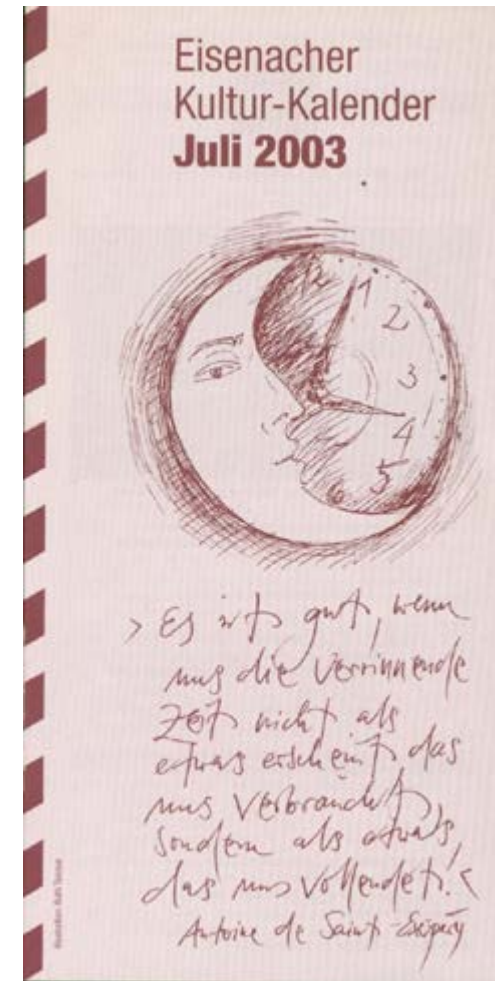 Eisenacher
Kultur-Kalender
Juli 2003
12
1
2
3
4
5
6
> Es ist gut, wenn
uns die verrinnende
Zeit nicht als
etwas erscheint, das
uns verbraucht,
sondern als etwas,
das uns vollendet. <
Antoine de Saint-Exupéry
Illustration: